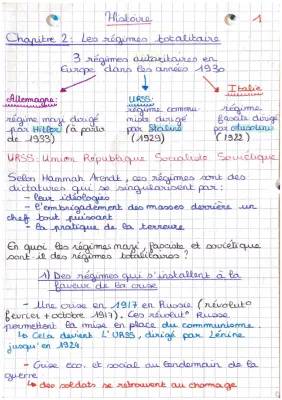 Histoire
1
Chapitre 2: Les régimes totalitaire
3 régimes autoritaires en
Europe dans les années 1930
Allemagne:
URSS:
Italie
régime nazi dirigé
par Hitler (à partir
de 1933)
régime commu-
niste dirigé
par Staline
(1929)
régime
fasciste dirigé
par Mussolini
(1922)
URSS: Union République Socialiste Soviétique
Selon Hannah Arendt, ces régimes sont des
dictatures qui se singularisent par:
- leur idéologies
- l'embrigadement des masses derrière un
chef tout puissant
- la pratique de la terreure
En quoi les régimes nazi, fasciste et soviétique
sont-il des régimes totalitaires?
1) Des régimes qui s'installent à la
faveur de la crise
- Une crise en 1917 en Russie (révolut°
février + octobre 1917). Ces révolut° Russe
permettent la mise en place du communisme.
↳ Cela devient l'URSS, dirigé par Lénine
jusqu'en 1924.
- Crise eco. et social au lendemain de la
guerre
↳ des soldats se retrouvent au chomage